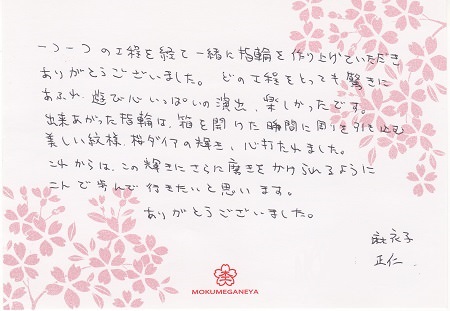 一つ一つの工程を経て一緒に指輪を作り上げていただき
ありがとうございました。どの工程をとっても驚きに
あふれ、遊び心いっぱいの演出、楽しかったです。
出来あがった指輪は、箱を開けた瞬間に周りを引き込む
美しい紋様、桜ダイアの輝き、心打たれました。
これからは、この輝きにさらに磨きをかけられるように
二人で歩んで行きたいと思います。
ありがとうございました。
麻衣子
正仁
MOKUMEGANEYA